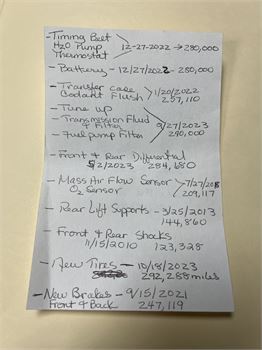 - Timing Belt
H2O Pump 12-27-2022 → 280,000
Thermostat
- Battery - 12/27/2022 - 280,000
- Transfer case 1/20/2022
Coolant Flush 257,110
- Tune up
- Transmission Fluid & Filter 9/27/2023
- Fuel pump Filter 290,000
- Front & Rear Differential
5/2/2023 284,680
- Mass Air Flow Sensor 7/27/2018
O2 Sensor 209,117
- Rear Lift Supports - 3/25/2013
144,860
- Front & Rear Shocks
11/15/2010 123,328
- New Tires - 10/18/2023
292,288 miles
- New Brakes - 9/15/2021
Front & Back 247,119